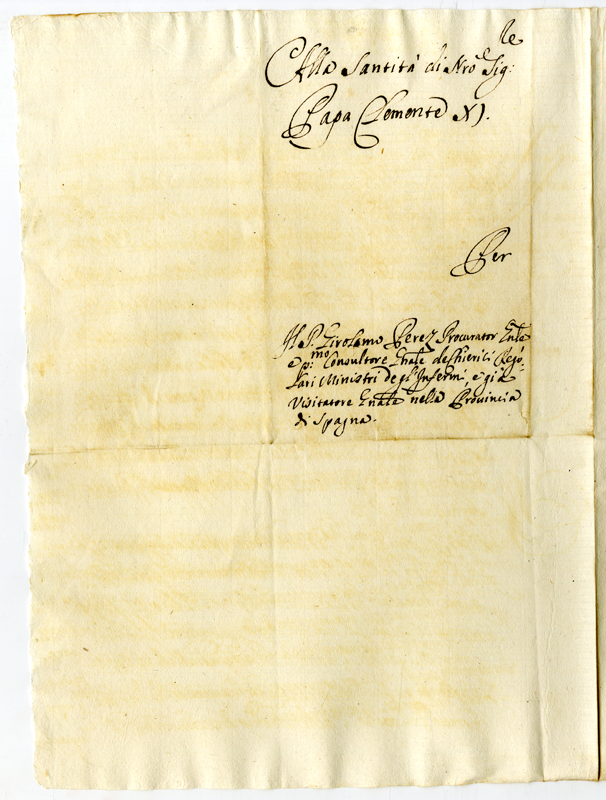 Alla Santità di Nro Sig:re
Papa Clemente XI.
Per
Il P. Girolamo Perez Procurator Gnle
e p:mo Consultore Gnale de Chierici Rego-
lari Ministri de gl'Infermi, e già
Visitatore Gnale nella Provincia
di Spagna.